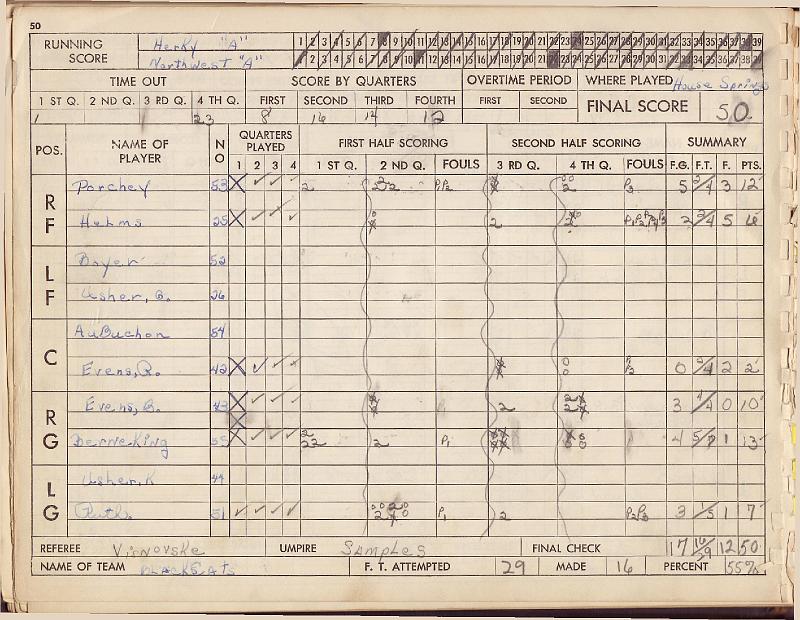 50
RUNNING SCORE Herky "A" 1 2 3 4 5 6 7 8 9 10 11 12 13 14 15 16 17 18 19 20 21 22 23 24 25 26 27 28 29 30 31 32 33 34 35 36 37 38 39
Northwest "A" 1 2 3 4 5 6 7 8 9 10 11 12 13 14 15 16 17 18 19 20 21 22 23 24 25 26 27 28 29 30 31 32 33 34 35 36 37 38 39
TIME OUT SCORE BY QUARTERS OVERTIME PERIOD WHERE PLAYED House Springs
1 ST Q. 2 ND Q. 3 RD Q. 4 TH Q. FIRST SECOND THIRD FOURTH FIRST SECOND FINAL SCORE 50
1 23 8 16 14 12
POS. NAME OF PLAYER NO QUARTERS PLAYED FIRST HALF SCORING SECOND HALF SCORING SUMMARY
1 2 3 4 1 ST Q. 2 ND Q. FOULS 3 RD Q. 4 TH Q. FOULS F.G. F.T. F. PTS.
RF Porchey 53 X ✓ ✓ ✓ 2 P1P2 2 P3 5 2/4 3 12
Helms 25 X ✓ ✓ ✓ 2 2 5 6
LF Boyer 52
Usher, G. 26
C AuBuchon 54
Evens, R. 42 X ✓ ✓ ✓ 0 2/4 2 2
RG Evens, B. 43 X ✓ ✓ ✓ 2 3 4/4 0 10
Berneking 55 X ✓ ✓ ✓ 2 22 2 P1 4 5/7 1 13
LG Usher, K 44
Ruth 51 ✓ ✓ ✓ ✓ P1 2 P2P3 3 1/5 1 7
REFEREE Virnovske UMPIRE Samples FINAL CHECK 17 16/29 12 50
NAME OF TEAM BLACKCATS F. T. ATTEMPTED 29 MADE 16 PERCENT 55%